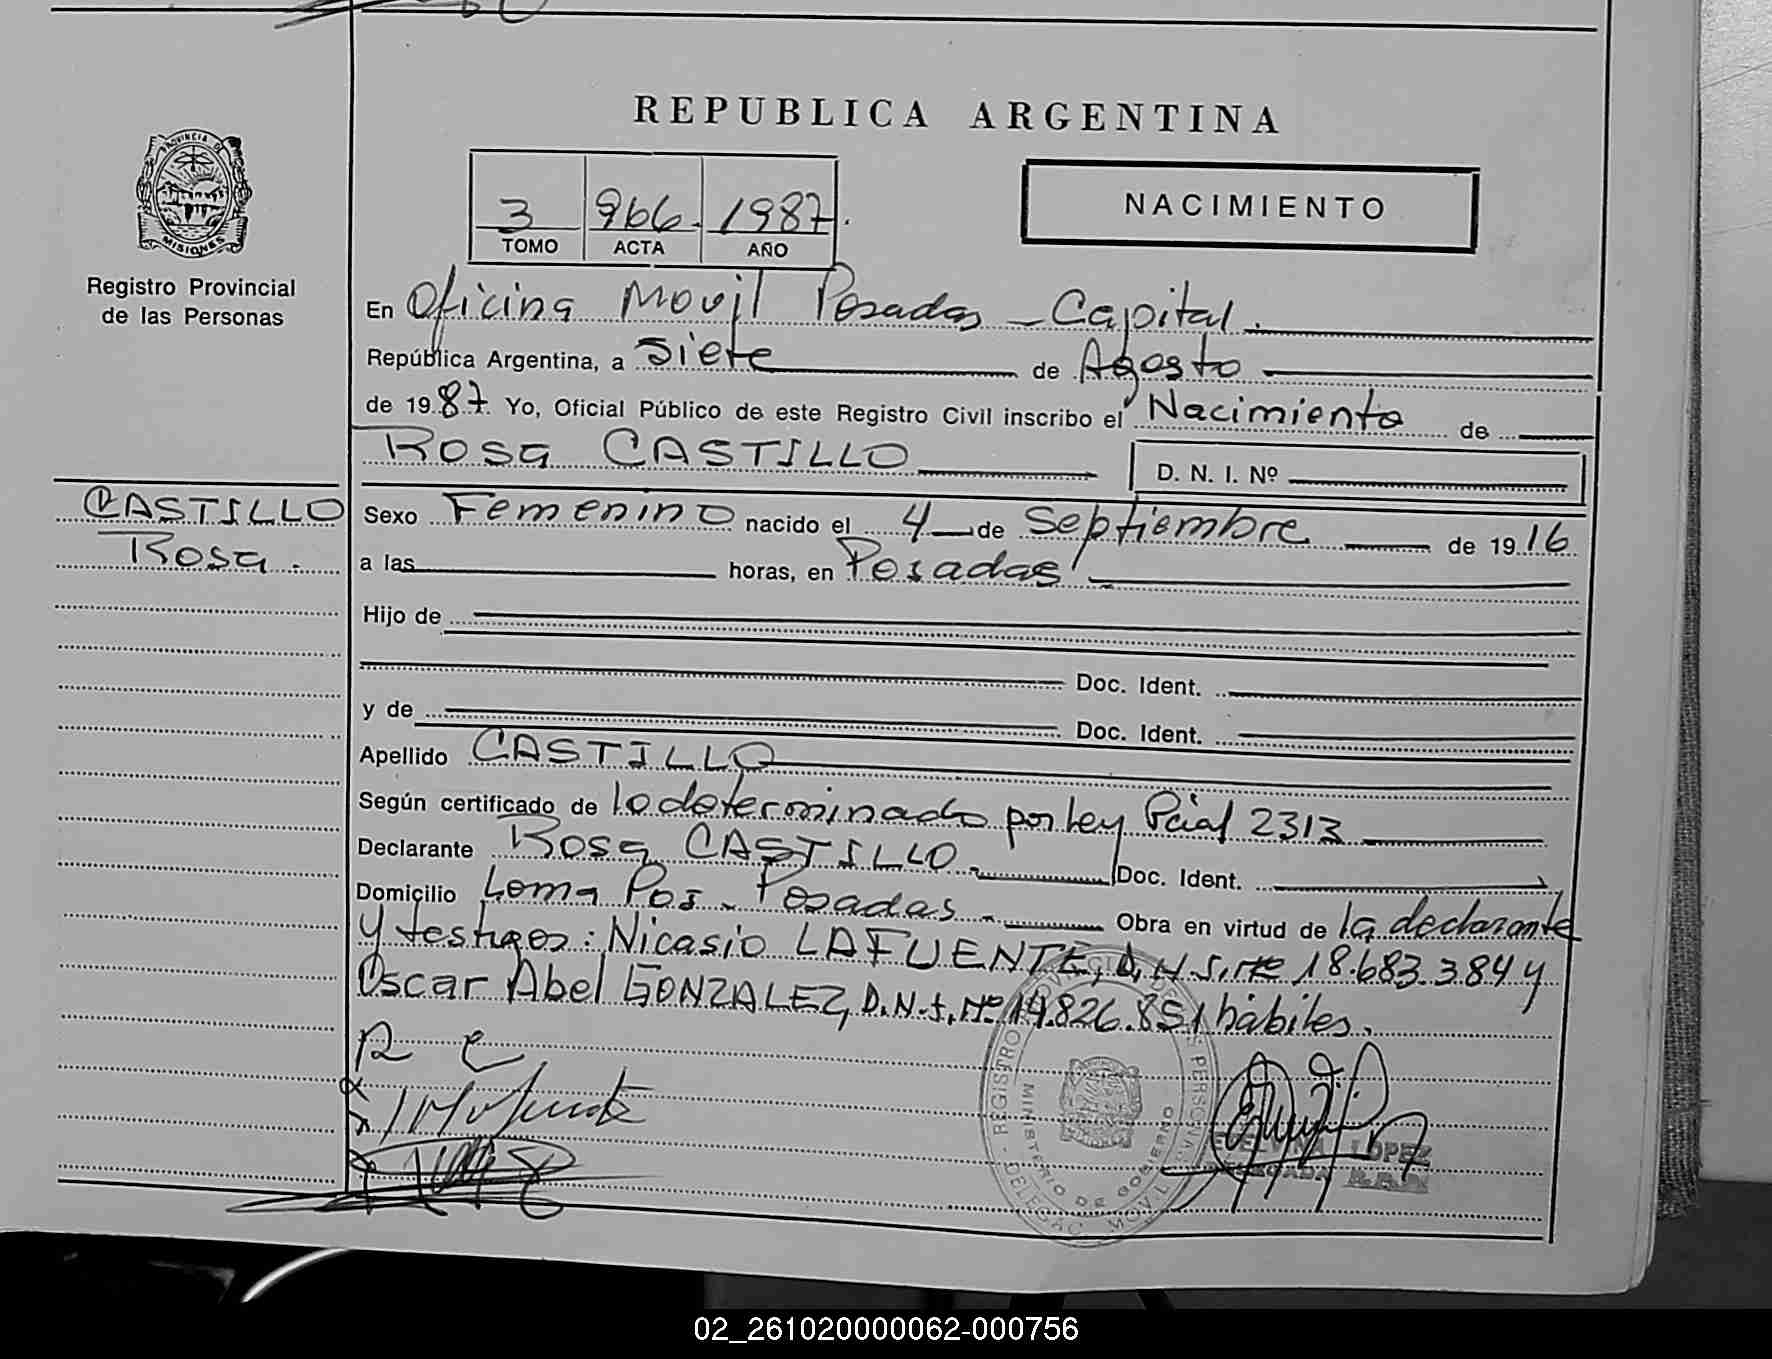 REPUBLICA ARGENTINA
PROVINCIA DE
MISIONES
Registro Provincial
de las Personas
3 966 1987
TOMO ACTA AÑO
NACIMIENTO
En Oficina Movil Posadas - Capital.
República Argentina, a siete de Agosto
de 1987. Yo, Oficial Público de este Registro Civil inscribo el Nacimiento de
Rosa CASTILLO D. N. I. Nº
CASTILLO
Rosa.
Sexo Femenino nacido el 4 de Septiembre de 1916
a las horas, en Posadas
Hijo de
Doc. Ident.
y de Doc. Ident.
Apellido CASTILLO
Según certificado de lo determinado por Ley Pcial 2313
Declarante Rosa CASTILLO Doc. Ident.
Domicilio Loma Poi - Posadas - Obra en virtud de la declarante
y testigos: Nicasio LAFUENTE, D.N.I. Nº 18.683.384 y
Oscar Abel GONZALEZ, D.N.I. Nº 14.826.851 hábiles.
R C
REGISTRO PROVINCIAL DE LAS PERSONAS
MINISTERIO DE GOBIERNO
DELEGAC. MOVIL
LOPEZ
02_261020000062-000756